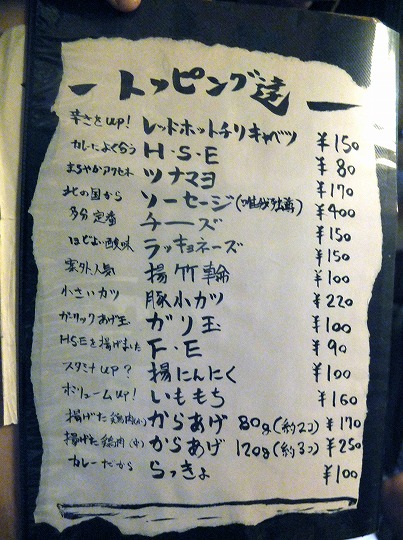 トッピング達
辛さをup! レッドホットチリキャベツ ¥150
カレーによく合う H・S・E ¥80
まろやかアクセント ツナマヨ ¥170
北の国から ソーセージ ¥400
多分定番 チーズ ¥150
ほどよい酸味 ラッキョネーズ ¥150
意外人気 揚竹輪 ¥100
小さいカツ 豚小カツ ¥220
ガーリックあげ玉 ガリ玉 ¥100
HSEを揚げました F・E ¥90
スタミナup? 揚にんにく ¥100
ボリュームup! いももち ¥160
揚げた鶏肉(小) からあげ 80g(約2コ) ¥170
揚げた鶏肉(中) からあげ 120g(約3コ) ¥250
カレーだから らっきょ ¥100